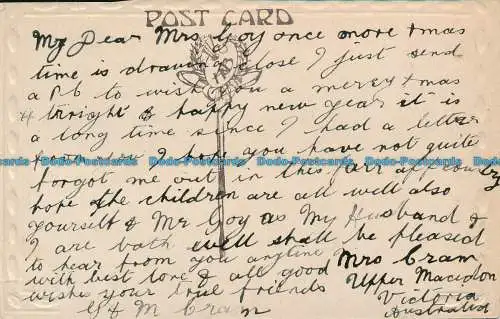 POST CARD
My Dear Mrs Goy once more & mas
time is drawing close I just send
a P6 to wish you a merry & mas
& bright & happy new year it is
a long time since I had a letter
from you I hope you have not quite
forgot me out in this far off country
hope the children are all well also
yourself & Mr Goy as My Husband &
I are both well shall be pleased
to hear from you anytime
with best love & all good
wishes your true friends
Mrs Cram
Upper Macedon
Victoria
Australia
G & M Cram
Dodo-Postcards Dodo-Postcards Dodo-Postcards Dodo-Postcards Dodo-Postcards